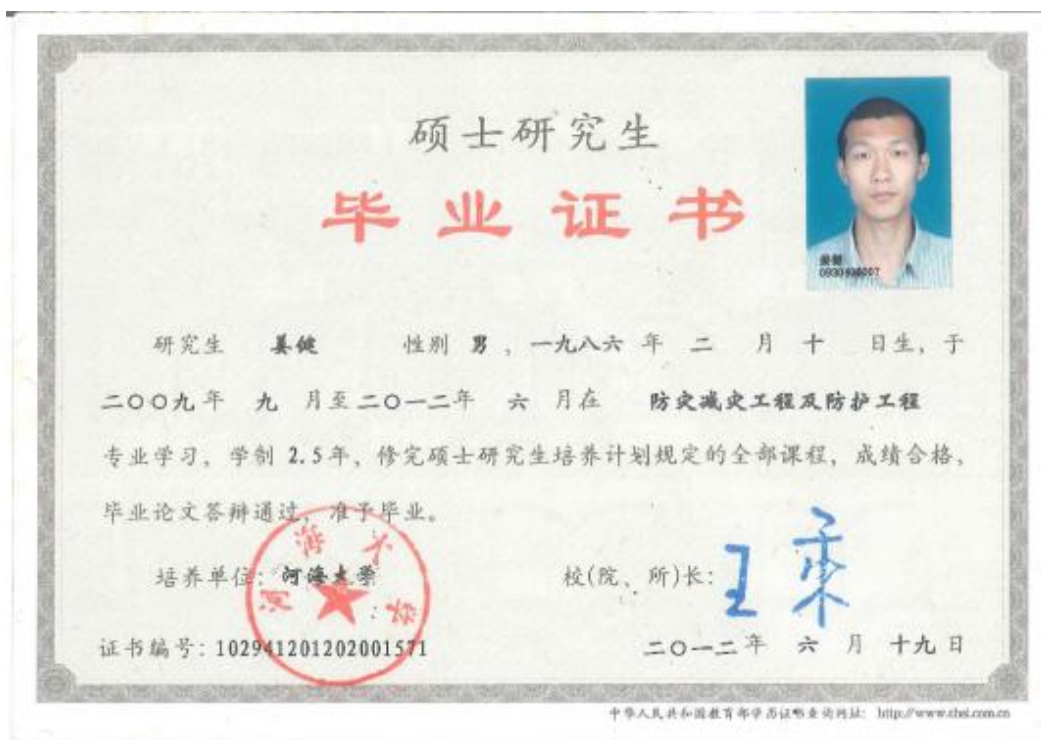 硕士研究生
毕业证书
姜健
研究生 姜健 性别 男 ，一九八六 年 二 月 十 日生，于
二〇〇九年 九 月至二〇一二年 六 月在 防灾减灾工程及防护工程
专业学习，学制 2.5年，修完硕士研究生培养计划规定的全部课程，成绩合格，
毕业论文答辩通过，准予毕业。
河海大学
培养单位：河海大学 校(院、所)长：
证书编号：102941201202001571 二〇一二年 六 月 十九 日
中华人民共和国教育部学历证书查询网址： http://www.chsi.com.cn